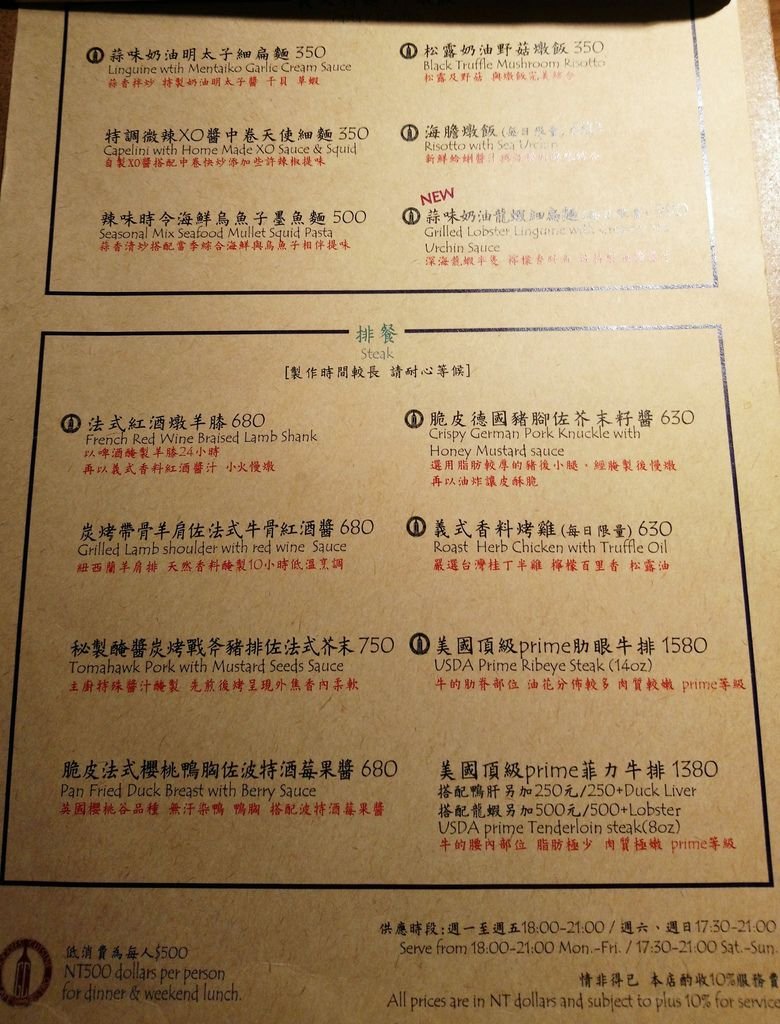 蒜味奶油明太子細扁麵 350
Linguine wtih Mentaiko Garlic Cream Sauce
蒜香拌炒 特製奶油明太子醬 干貝 草蝦
特調微辣XO醬中卷天使細麵 350
Capelini with Home Made XO Sauce & Squid
自製XO醬搭配中卷快炒添加些許辣椒提味
辣味時令海鮮烏魚子墨魚麵 500
Seasonal Mix Seafood Mullet Squid Pasta
蒜香清炒搭配當季綜合海鮮與烏魚子相伴提味
松露奶油野菇燉飯 350
Black Truffle Mushroom Risotto
松露及野菇 與燉飯完美結合
海膽燉飯 (每日限量)
Risotto with Sea Urchin
新鮮蛤蜊醬汁
NEW
蒜味奶油龍蝦細扁麵
Grilled Lobster Linguine with
Urchin Sauce
深海龍蝦半隻 檸檬香
排餐
Steak
[製作時間較長 請耐心等候]
法式紅酒燉羊膝 680
French Red Wine Braised Lamb Shank
以啤酒醃製羊膝24小時
再以義式香料紅酒醬汁 小火慢燉
炭烤帶骨羊肩佐法式牛骨紅酒醬 680
Grilled Lamb shoulder with red wine Sauce
紐西蘭羊肩排 天然香料醃製10小時低溫烹調
秘製醃醬炭烤戰斧豬排佐法式芥末 750
Tomahawk Pork with Mustard Seeds Sauce
主廚特殊醬汁醃製 先煎後烤呈現外焦香內柔軟
脆皮法式櫻桃鴨胸佐波特酒莓果醬 680
Pan Fried Duck Breast with Berry Sauce
英國櫻桃谷品種 無汙染鴨 鴨胸 搭配波特酒莓果醬
脆皮德國豬腳佐芥末籽醬 630
Crispy German Pork Knuckle with
Honey Mustard sauce
選用脂肪較厚的豬後小腿、經醃製後慢燉
再以油炸讓皮酥脆
義式香料烤雞 (每日限量) 630
Roast Herb Chicken with Truffle Oil
嚴選台灣桂丁半雞 檸檬百里香 松露油
美國頂級prime肋眼牛排 1580
USDA Prime Ribeye Steak (14oz)
牛的肋脊部位 油花分佈較多 肉質較嫩 prime等級
美國頂級prime菲力牛排 1380
搭配鴨肝另加250元/250+Duck Liver
搭配龍蝦另加500元/500+Lobster
USDA prime Tenderloin steak(8oz)
牛的腰內部位 脂肪極少 肉質極嫩 prime等級
低消費為每人$500
NT500 dollars per person
for dinner & weekend lunch.
供應時段:週一至週五18:00-21:00 / 週六、週日17:30-21:00
Serve from 18:00-21:00 Mon.-Fri. / 17:30-21:00 Sat.-Sun.
情非得已 本店酌收10%服務費
All prices are in NT dollars and subject to plus 10% for service